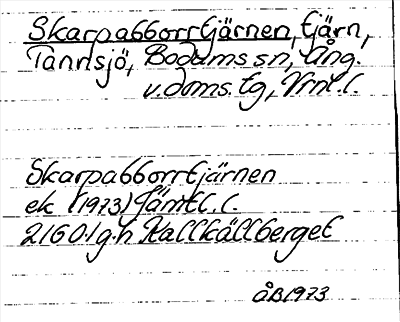 Skarpabborrtjärnen, tjärn,
Tannsjö, Bodums sn, Ång.
v.doms. tg, Vrnl. l.
Skarpabborrtjärnen
ek (1973) Jämtl. l.
21601gh Kallkällberget
ÅB1973